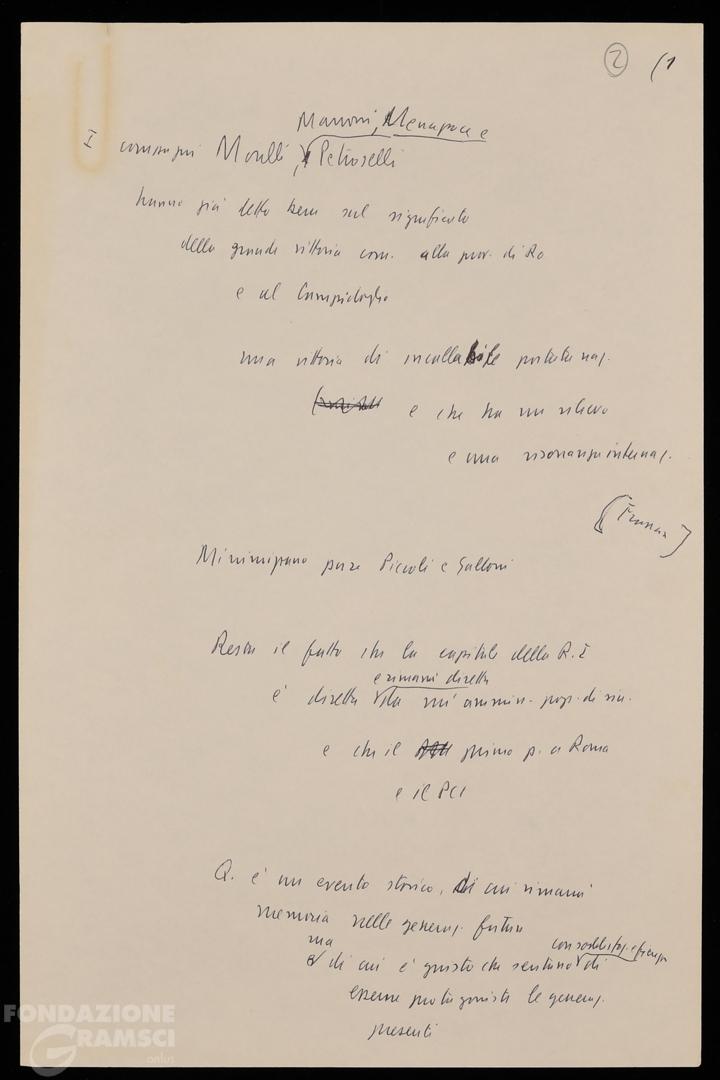 2 (1
Marroni, Menapace e
I compagni Morelli, Petroselli
hanno già detto bene sul significato
della grande vittoria com. alla prov. di Ro
e al Campidoglio
una vittoria di incalcolabile portata naz.
e che ha un rilievo
e una risonanza internaz.
[Francia]
Minimizzano pure Piccoli e Galloni
Resta il fatto che la capitale della R.I
e rimarrà diretta
è diretta da un'ammin. pop. di sin.
e che il primo p. a Roma
è il PCI
Q. è un evento storico, di cui rimarrà
memoria nelle generaz. future
ma con soddisfaz. e
di cui è giusto che sentano di
essere protagoniste le generaz.
presenti
FONDAZIONE
GRAMSCI
onlus